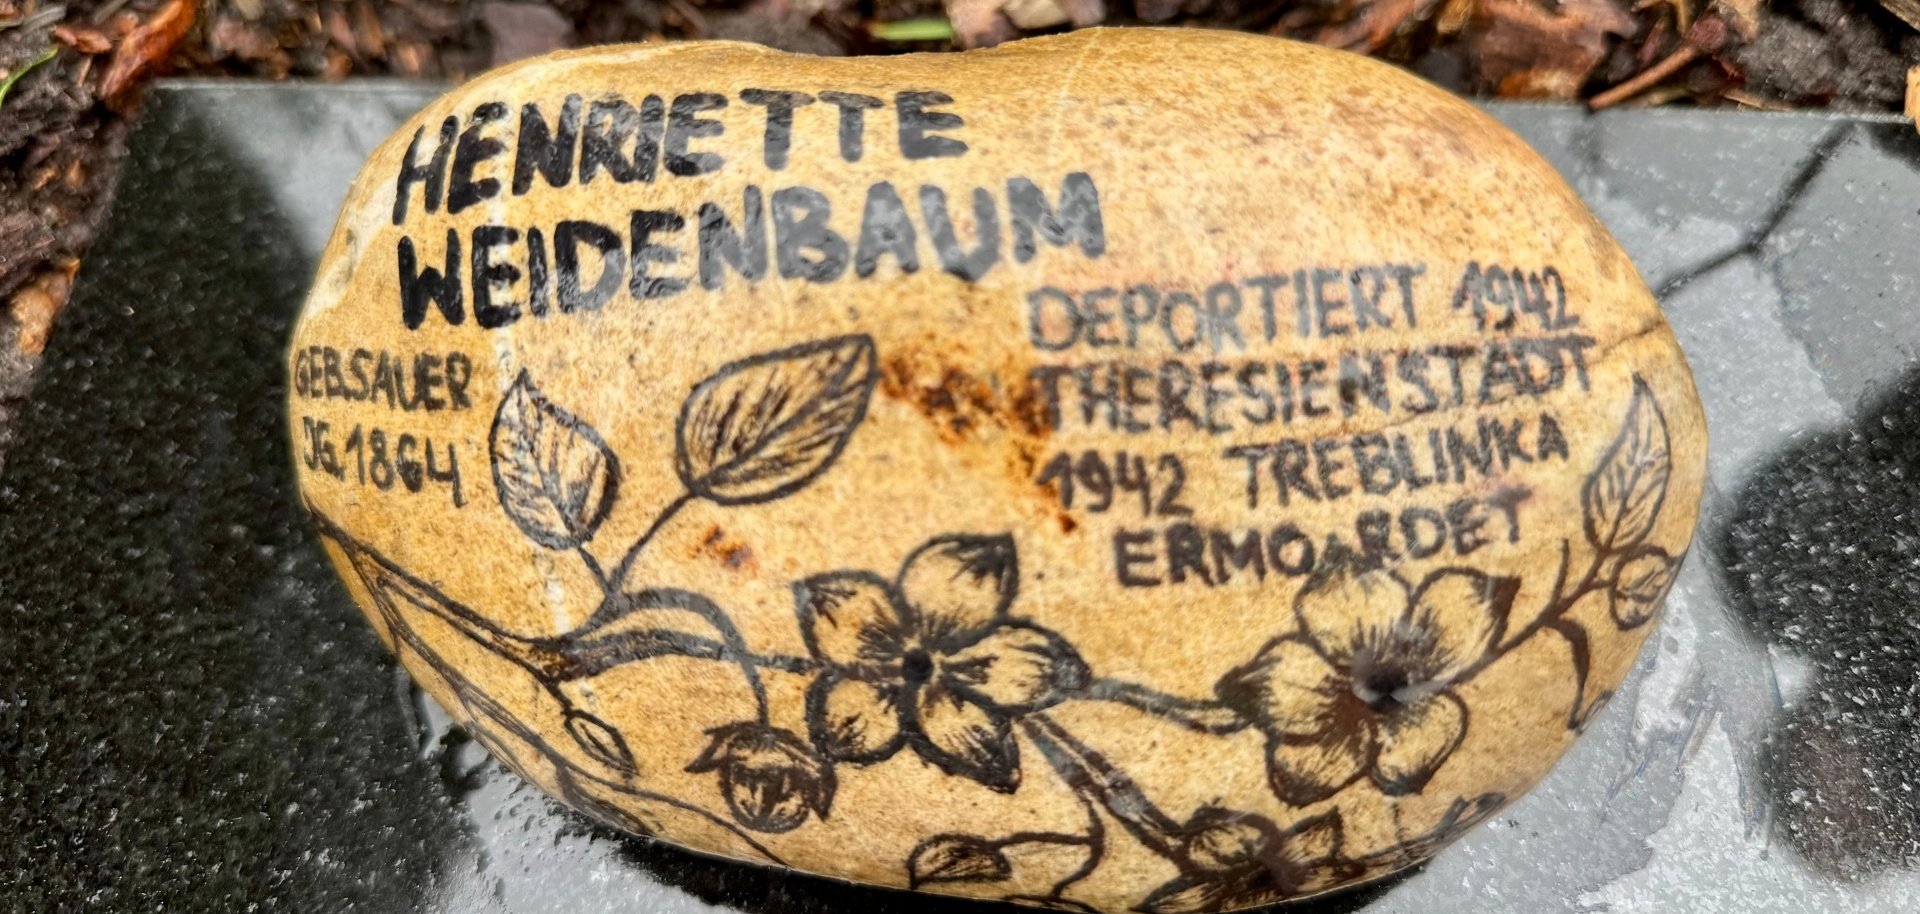 HENRIETTE
WEIDENBAUM
GEB.SAUER
JG.1864
DEPORTIERT 1942
THERESIENSTADT
1942 TREBLINKA
ERMORDET